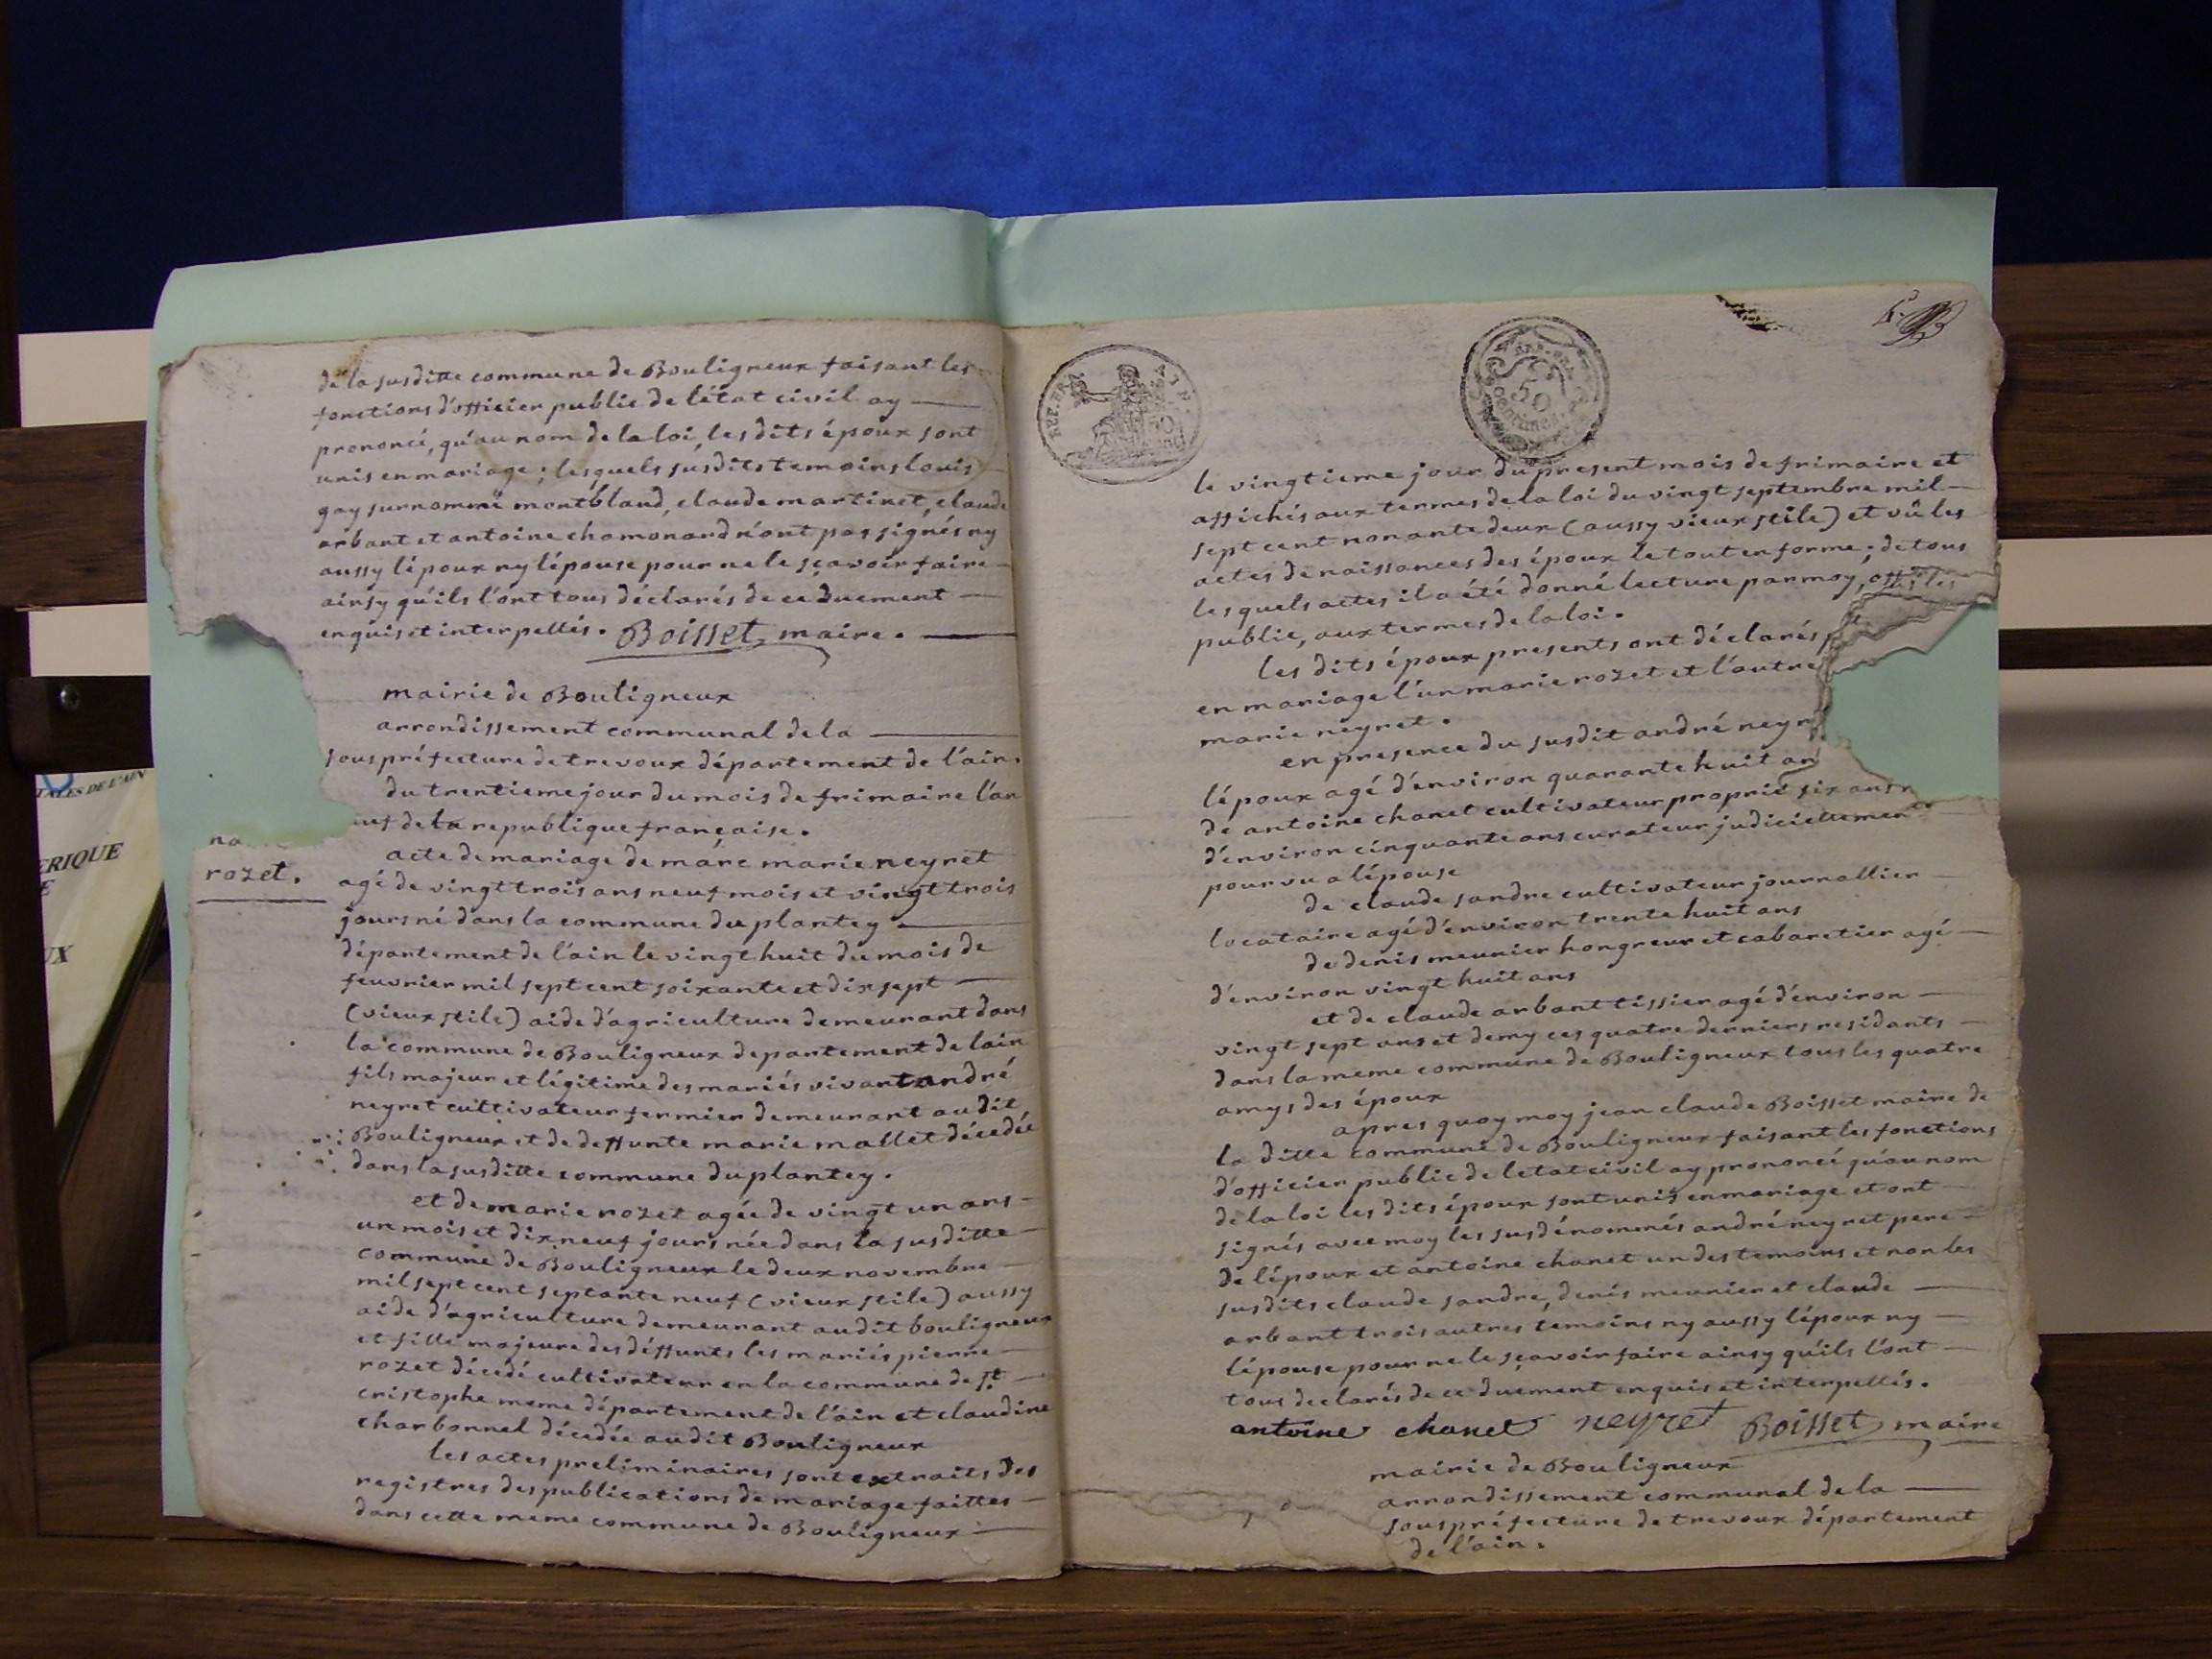 de la susditte commune de Bouligneux faisant les
fonctions d'officier public de l'état civil ay
prononcé, qu'au nom de la loi, les dits époux sont
unis en mariage; lesquels susdits temoins louis
gay surnommé montbland, claude martinet, claude
arbant et antoine chamonard n'ont pas signés ny
aussy l'époux ny l'épouse pour ne le sçavoir faire
ainsy qu'ils l'ont tous déclarés de ce duement
enquis et interpellés. Boisset maire.
mairie de Bouligneux
arrondissement communal de la
souspréfecture de trevoux département de l'ain.
du trentieme jour du mois de frimaire l'an
de la republique française.
rozet.
acte de mariage de marc marie neyret
agé de vingt trois ans neuf mois et vingt trois
jours né dans la commune du plantey
département de l'ain le vingt huit du mois de
feuvrier mil sept cent soixante et dix sept
(vieux stile) aide d'agriculture demeurant dans
la commune de Bouligneux departement de lain
fils majeur et légitime des mariés vivant andré
neyret cultivateur fermier demeurant au dit
Bouligneux et de deffunte marie mallet décedée
dans la susditte commune du plantey.
et de marie rozet agée de vingt un ans
un mois et dix neuf jours née dans la susditte
commune de Bouligneux le deux novembre
mil sept cent septante neuf (vieux stile) aussy
aide d'agriculture demeurant au dit bouligneux
et fille majeure des déffunts les mariés pierre
rozet décédé cultivateur en la commune de st
cristophe meme département de l'ain et claudine
charbonnel décedée au dit Bouligneux
les actes preliminaires sont extraits des
registres des publications de mariage faittes
dans cette meme commune de Bouligneux
REP. FRA
50
centimes
le vingtieme jour du present mois de frimaire et
affichés aux termes de la loi du vingt septembre mil
sept cent nonante deux (aussy vieux stile) et vû les
actes de naissances des époux le tout en forme; de tous
les quels actes il a été donné lecture par moy,
public, aux termes de la loi.
les dits époux presents ont déclarés
en mariage l'un marie rozet et l'autre
marie neyret.
en presence du susdit andré
l'époux agé d'environ quarante huit
de antoine chanet cultivateur
d'environ cinquante ans curateur judiciellement
pourvu a l'épouse
de claude sandre cultivateur journallier
locataire agé d'environ trente huit ans
de denis meunier hongreur et cabaretier agé
d'environ vingt huit ans
et de claude arbant tissier agé d'environ
vingt sept ans et demy ces quatre derniers residants
dans la meme commune de Bouligneux tous les quatre
amys des époux
apres quoy moy jean claude Boisset maire de
la ditte commune de Bouligneux faisant les fonctions
d'officier public de letat civil ay prononcé qu'au nom
de la loi les dits époux sont unis en mariage et ont
signés avec moy les susdénommés andré neyret pere
de l'époux et antoine chanet un des temoins et non les
susdits claude sandre, denis meunier et claude
arbant trois autres temoins ny aussy l'époux ny
l'épouse pour ne le sçavoir faire ainsy qu'ils l'ont
tous declarés de ce duement enquis et interpellés.
antoine chanet neyret Boisset maire
mairie de Bouligneux
arrondissement communal de la
souspréfecture de trevoux département
de l'ain.